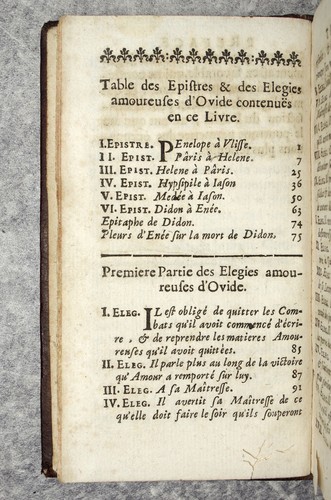 Table des Epiſtres & des Elegies
amoureuſes d'Ovide contenuës
en ce Livre.
I. EPISTRE. PEnelope à Vliſſe. 1
II. EPIST. Pâris à Helene. 7
III. EPIST. Helene à Pâris. 25
IV. EPIST. Hypſipile à Iaſon 36
V. EPIST. Medée à Iaſon. 50
VI. EPIST. Didon à Enée. 63
Epitaphe de Didon. 74
Pleurs d'Enée ſur la mort de Didon. 75
Premiere Partie des Elegies amou-
reuſes d'Ovide.
I. ELEG. IL eſt obligé de quitter les Com-
bats qu'il avoit commencé d'écri-
re, & de reprendre les matieres Amou-
reuſes qu'il avoit quittées. 85
II. ELEG. Il parle plus au long de la victoire
qu'Amour a remporté ſur luy. 87
III. ELEG. A ſa Maîtreſſe. 91
IV. ELEG. Il avertit ſa Maîtreſſe de ce
qu'elle doit faire le ſoir qu'ils ſouperont